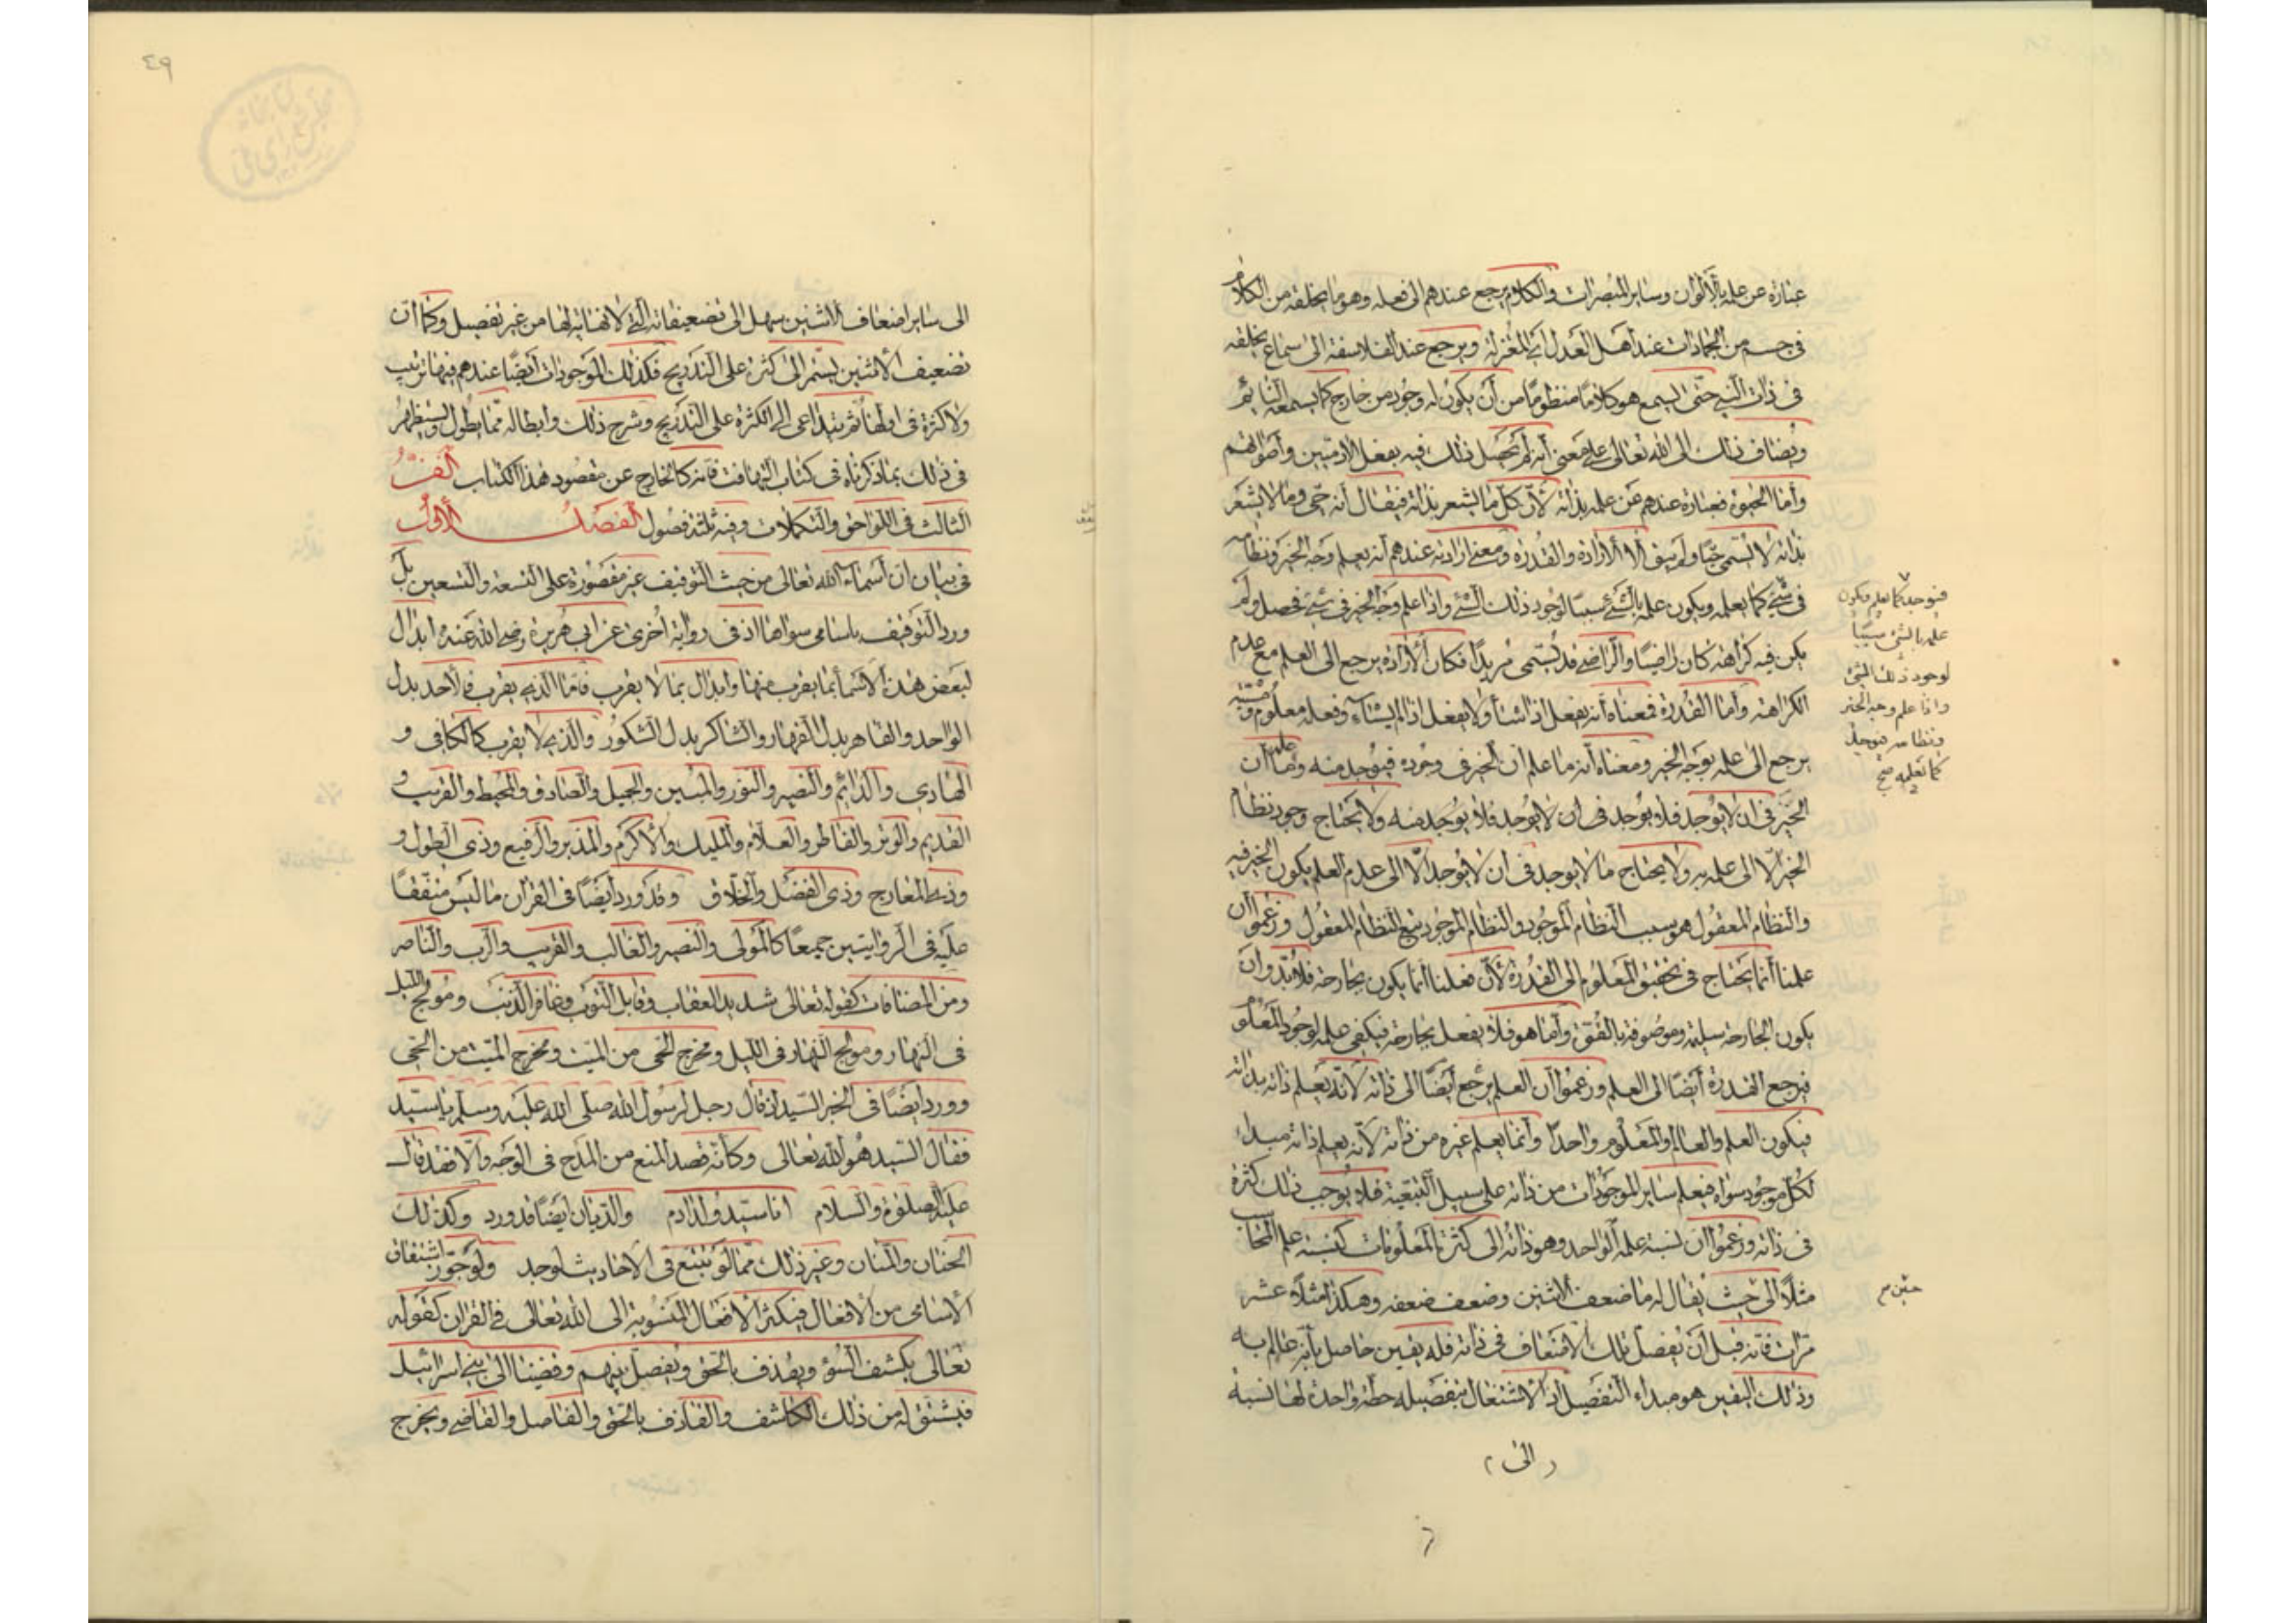 عبارة عن علمه بالألوان وسایر المبصرات والكلام یرجع عندهم الی فعله وهو ما یخلقه من الكلام
فی جسم من الجمادات عند أهل العدل أی المعتزلة ویرجع عند الفلاسفة الی سماع یخلقه
فی ذات النبی حتی یسمع هو كلاما منظوما من أن یكون له وجود من خارج كما یسمعه النایم
ویضاف ذلك الی الله تعالی علی معنی أنه لم یحصل ذلك فیه بفعل الآدمیین وأصواتهم
وأما الحیوة فعبارة عندهم عن علمه بذاته لأن كل ما یشعر بذاته فیقال أنه حی وما لا یشعر
بذاته لا یسمی حیا ولم یبق الا الإرادة والقدرة ومعنی إرادته عندهم أنه یعلم وجه الخیر ونظامه
فی شیء كما یعلمه ویكون علمه بالشیء سببا لوجود ذلك الشیء وإذا علم وجه الخیر فی شیء فحصل ولم
یكن فیه كراهة كان راضیا والراضی قد یسمی مریدا فكان الإرادة یرجع الی العلم مع عدم
الكراهة وأما القدرة فمعناه أنه یفعل اذا شاء ولا یفعل اذا لم یشاء وفعله معلوم ومشیته
یرجع الی علمه بوجه الخیر ومعناه أنه ما علم ان الخیر فی وجوده فیوجد منه وما علم أن
الخیر فی ان لا یوجد فلا یوجد فی ان لا یوجد فلا یوجد منه ولا یحتاج وجود نظام
الخیر الا الی علمه به ولا یحتاج ما لا یوجد فی ان لا یوجد الا الی عدم العلم بكون الخیر فیه
والنظام المعقول هو سبب النظام الموجود والنظام الموجود یتبع النظام المعقول وزعموا أن
علمنا أنما یحتاج فی تحقیق المعلوم الی القدرة لأن فعلنا انما یكون بجارحة فلا بد وان
یكون الجارحة سلیمة وموصوفة بالقوة وأما هو فلا یفعل بجارحة فیكفی علمه لوجود المعلوم
فیرجع القدرة أیضا الی العلم وزعموا أن العلم یرجع أیضا الی ذاته لأنه یعلم ذاته بذاته
فیكون العلم والعالم والمعلوم واحدا وأنما یعلم غیره من ذاته لأنه یعلم ذاته مبداء
لكل موجود سواه فیعلم سایر الموجودات من ذاته علی سبیل التبعیة فلا یوجب ذلك كثرة
فی ذاته وزعموا ان نسبة علمه الواحد وهو ذاته الی كثرة المعلومات كنسبة علم المحاسب
مثلا الی حیث یقال له ما ضعف الاثنین وضعف ضعفه وهكذا مثلا عشر
مرات فانه قبل أن یفصل تلك الاضعاف فی ذاته فله یقین حاصل بأنه عالم به
وذلك الیقین هو مبداء التفصیل اذ الاشتغال بتفصیله خطة واحدة لها نسبة
الی
فیوجد كما یعلم فیكون
علمه بالشیء سببا
لوجود ذلك الشیء
واذا علم وجه الخیر
ونظامه فیوجد
كما یعلمه صح
٤٩
الی سایر اضعاف الاثنین بسهل الی تضعیفاته التی لا نهایة لها من غیر تفصیل وكما أن
تضعیف الاثنین یستمر الی كثرة علی التدریج فكذلك الموجودات أیضا عندهم فیها ترتیب
ولا كثرة فی اولها ثم یتداعی الی الكثرة علی التدریج وشرح ذلك وابطاله مما یطول ولیستظهر
فی ذلك بما ذكرناه فی كتاب التهافت فانه كالخارج عن مقصود هذا الكتاب الفن
الثالث فی اللواحق والتكملات وفیه ثلثة فصول الفصل الأول
فی بیان ان أسماء الله تعالی من حیث التوقیف غیر مقصورة علی التسعة والتسعین بل
ورد التوقیف باسامی سواها اذ فی روایة أخری عن ابی هریرة رضی الله عنه ابدال
لبعض هذه الاسماء بما یقرب منها وابدال بما لا یقرب فاما الذی یقرب فالأحد بدل
الواحد والقاهر بدل القهار والشاكر بدل الشكور والذی لا یقرب كالكافی و
الهادی والدائم والنصیر والنور والمبین والجمیل والصادق والمحیط والقریب و
القدیم والوتر والفاطر والعلام والملیك والاكرم والمدبر والرفیع وذی الطول و
وذی المعارج وذی الفضل والخلاق وقد ورد أیضا فی القرآن ما لیس متفقا
علیه فی الروایتین جمیعا كالمولی والنصیر والغالب والقریب والرب والناصر
ومن المضافات كقوله تعالی شدید العقاب وقابل التوب وغافر الذنب ومولج اللیل
فی النهار ومولج النهار فی اللیل ومخرج الحی من المیت ومخرج المیت من الحی
وورد أیضا فی الخبر السید اذ قال رجل لرسول الله صلی الله علیه وسلم یا سید
فقال السید هو الله تعالی وكأنه قصد المنع من المدح فی الوجه والا فقد قال
علیه الصلوة والسلام انا سید ولد آدم والدیان ایضا قد ورد وكذلك
الحنان والمنان وغیر ذلك مما لو تتبع فی الاحادیث لوجد ولو جوز اشتقاق
الأسامی من الافعال فیكثر الافعال المنسوبة الی الله تعالی فی القرآن كقوله
تعالی یكشف السوء ویقذف بالحق ویفصل بینهم وقضینا الی بنی اسرائیل
فیشتق له من ذلك الكاشف والقاذف بالحق والفاصل والقاضی ویخرج